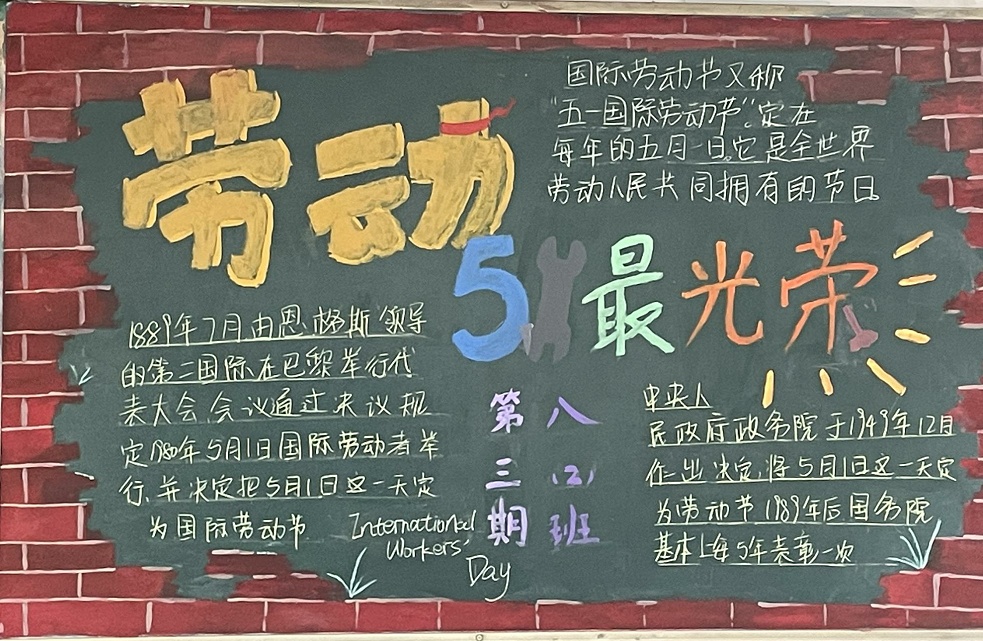 劳动
51最光荣
国际劳动节又称
"五一国际劳动节",定在
每年的五月一日。它是全世界
劳动人民共同拥有的节日
1889年7月由恩格斯领导
的第二国际在巴黎举行代
表大会,会议通过决议规
定1980年5月1日国际劳动者举
行,并决定把5月1日这一天定
为国际劳动节
International
Workers'
Day
第三期
八(2)班
中央人
民政府政务院于1949年12月
作出决定,将5月1日这一天定
为劳动节 1989年后国务院
基本上每5年表彰一次